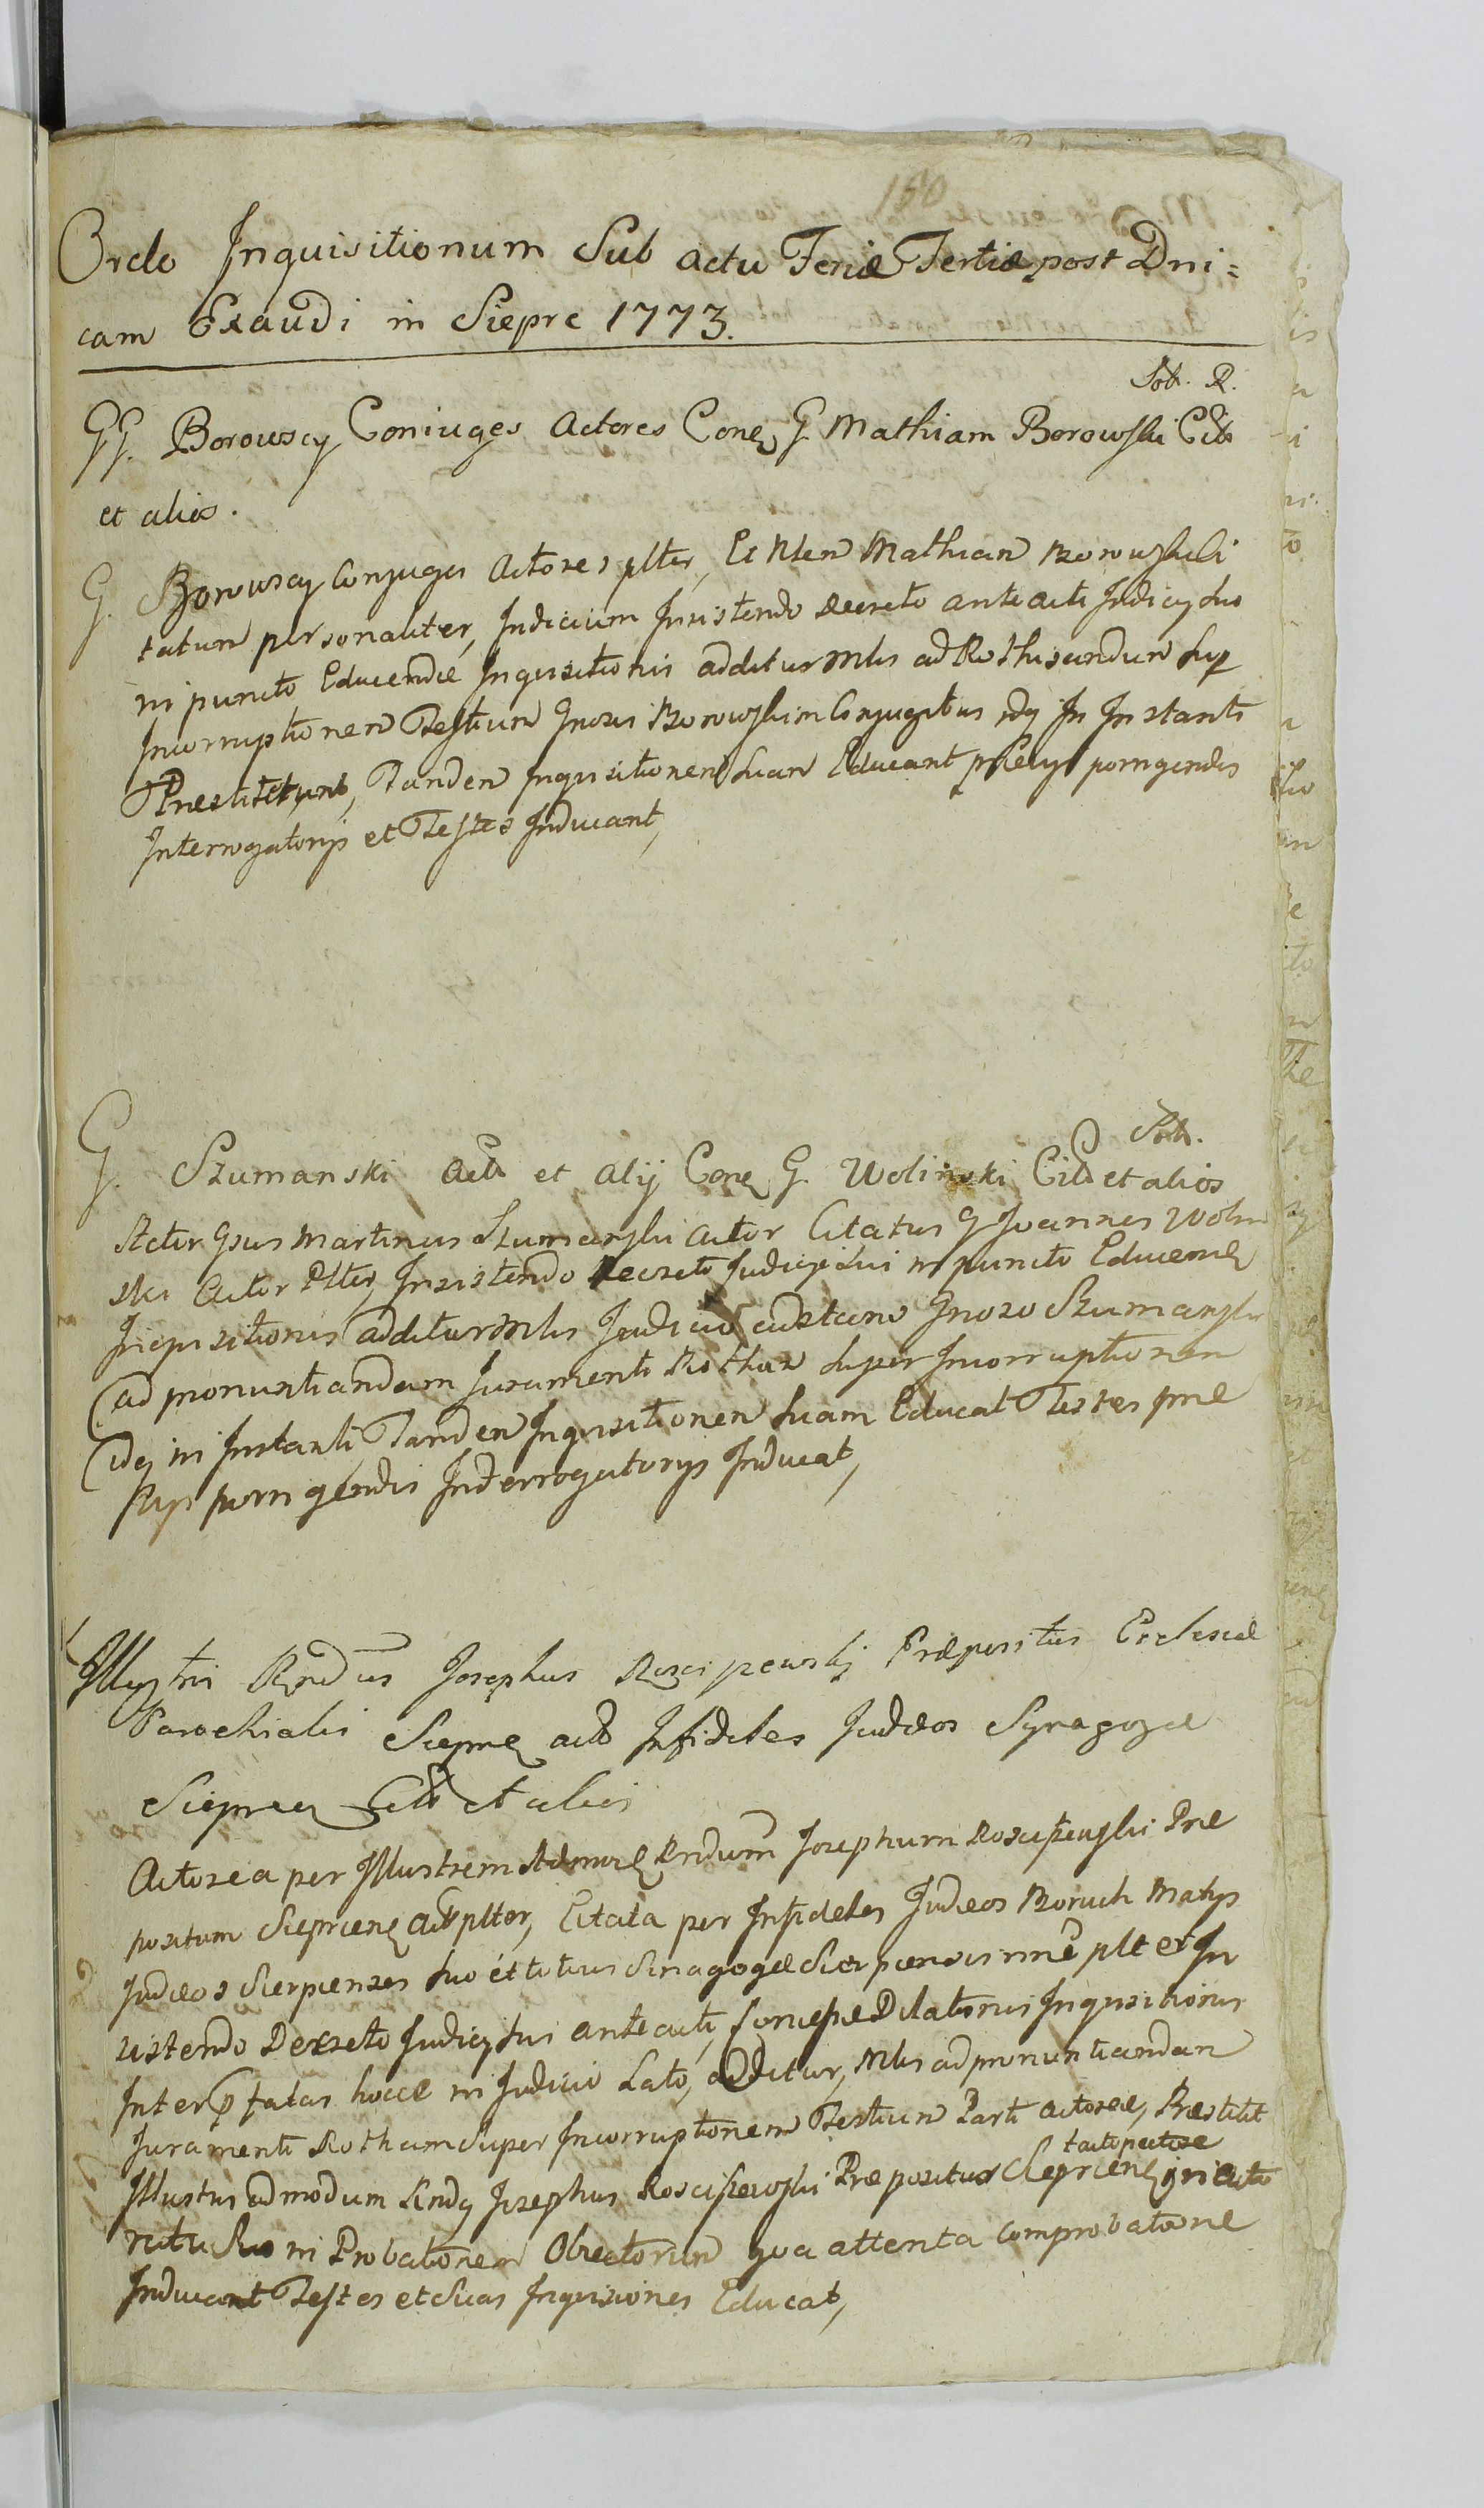 150
Ordo Inquisitionum Sub actu Feriæ Tertiæ post Dni=
cam Exaudi in Sieprc 1773.
Sob. R.
GG. Borowscy Coniuges Actores Conq G. Mathiam Borowski Citt
et alios.
G. Borowscy Conjuges Actores plter, Et Nlem Mathian Borowski Ci
tatum personaliter, Judicium Insistendo Decreto ante acti Judicy suo
in puncto Educendæ Inquisitionis additur Mlis ad Rothisandum sup
Incorruptionem Testium Gnosis Borowskim Conjugibus idq In Instanti
Præstiterunt, Tandem Inquisitionem suam Educant porrigendis
Interrogatorijs et Testes Inducant,
Sob.
G. Szumanski Actt et Alij Conq G. Wolinski Citt et alios
Actor Gsus Martinus Szumanski Actor Citatus G Joannes Wolin
ski Actor Pltter Insistendo Decreto Judicij sui in puncto Educend
Inqusitionis additur Mlis Judicio Gnoso Szumanski
ad pronuntiandam Juramenti Rotham super Incorruptionem
idq in Instanti, Tandem Inqusitionem suam Educat Testes præ
porrigendis Interrogatorijs Inducat,
Illustris Rndus Josephus Rosciszewski Præpositus Ecclesiæ
Parochialis Sieprc actt Infideles Judæos Synagogæ
Citt et alios
Actorea per Illustrem Rndum Josephum Rosciszewski Præ
positum Sieprcenq Actt pltter, Citata per Infideles Judæos Boruch Matys
Judæos Sierpienses suo et totius Sinagogæ Sierpiensis nne plt et In
sistendo Decreto Judicy sui ante acti, Dilatorius Inqusitionis
Inter fatas hocce in Judicio Lato, additur, Mlis ad pronuntiandam
Juramenti Rotham super Incorruptionem Testium Parti Actoreæ, Præstitit
tacto pectore
Illustris admodum Rndq Josephus Rosciszewski Præpositus Sieprcenq
ritu suo in Probationem Obiectorum qua attenta comprobatione
Inducant Testes et suas Inqusiones Educat,